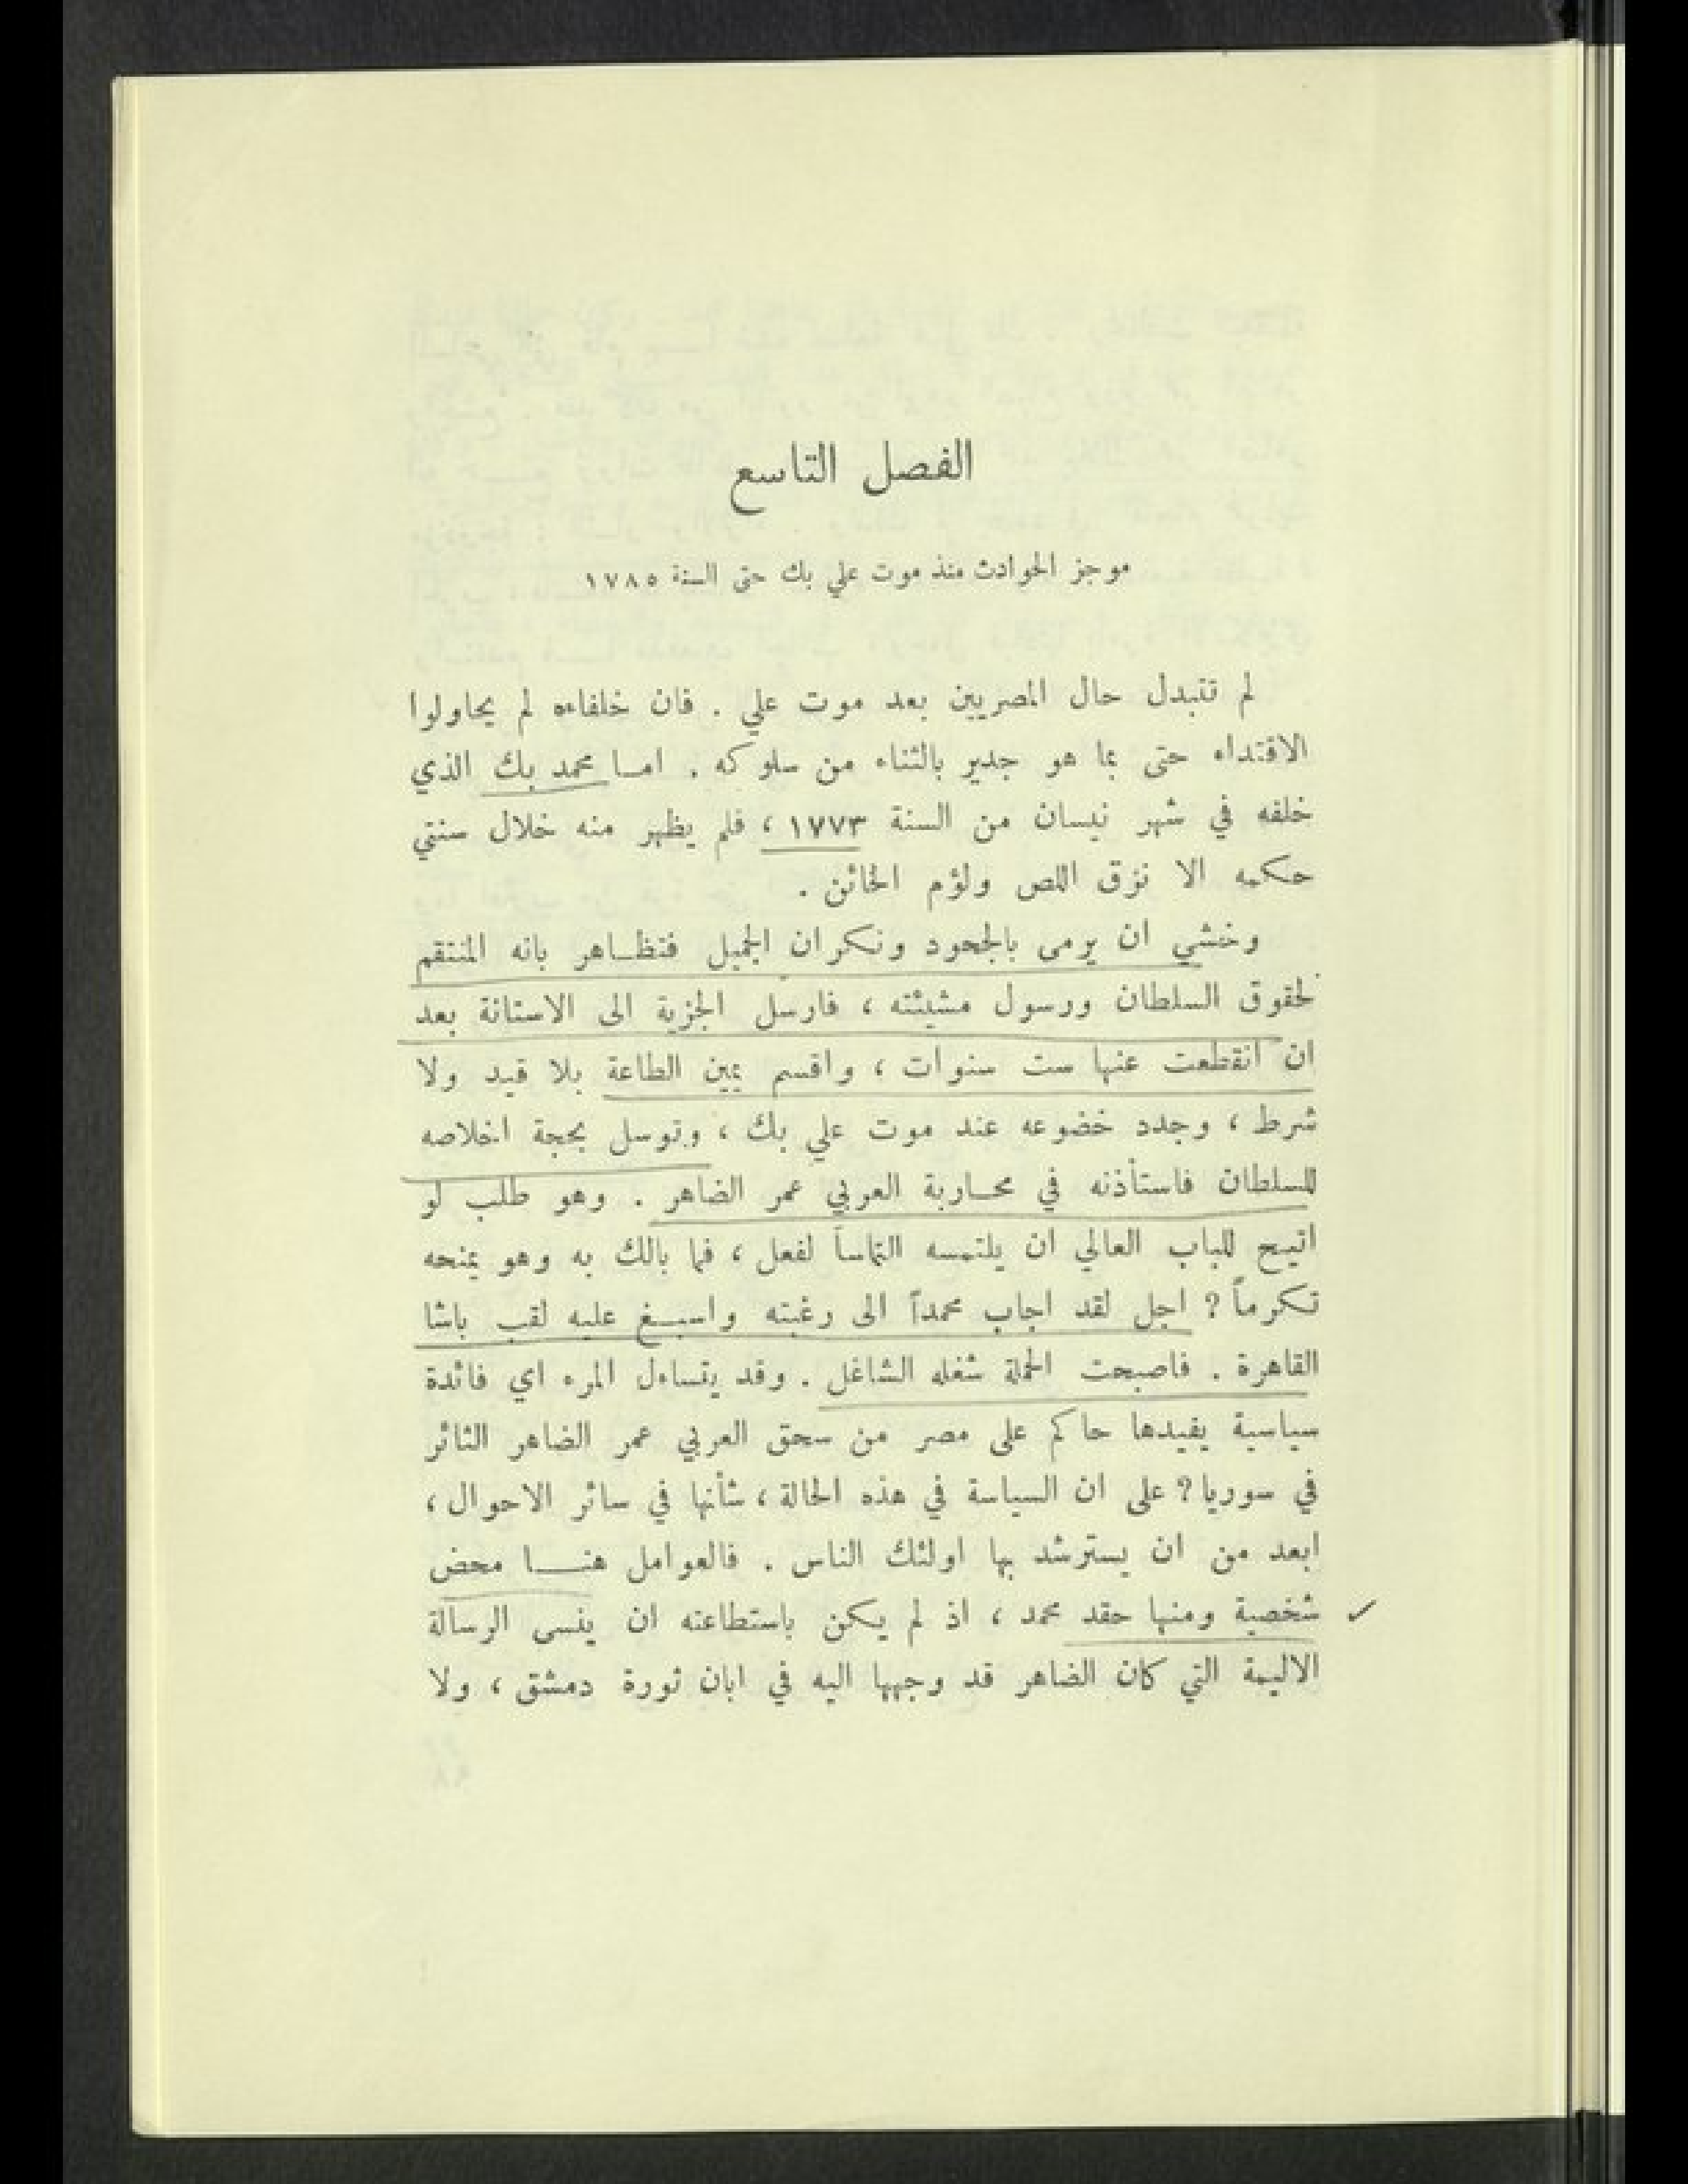 الفصل التاسع
موجز الحوادث منذ موت علي بك حتى السنة ١٧٨٥
لم تتبدل حال المصريين بعد موت علي . فان خلفاءه لم يحاولوا
الاقتداء حتى بما هو جدير بالثناء من سلوكه . امـا محمد بك الذي
خلفه في شهر نيسان من السنة ١٧٧٣ ، فلم يظهر منه خلال سنتي
حكمه الا نزق اللص ولؤم الخائن .
وخشي ان يرمى بالجحود ونكران الجميل فتظـاهر بانه المنتقم
لحقوق السلطان ورسول مشيئته ، فارسل الجزية الى الاستانة بعد
ان انقطعت عنها ست سنوات ، واقسم يمين الطاعة بلا قيد ولا
شرط ، وجدد خضوعه عند موت علي بك ، وتوسل بحجة اخلاصه
للسلطان فاستأذنه في محـاربة العربي عمر الضاهر . وهو طلب لو
اتيح للباب العالي ان يلتمسه التماساً لفعل ، فما بالك به وهو يمنحه
تكرماً ? اجل لقد اجاب محمداً الى رغبته واسبـغ عليه لقب باشا
القاهرة . فاصبحت الحملة شغله الشاغل . وقد يتساءل المرء اي فائدة
سياسية يفيدها حاكم على مصر من سحق العربي عمر الضاهر الثائر
في سوريا ? على ان السياسة في هذه الحالة ، شأنها في سائر الاحوال ،
ابعد من ان يسترشد بها اولئك الناس . فالعوامل هنـــا محض
شخصية ومنها حقد محمد ، اذ لم يكن باستطاعته ان ينسى الرسالة
الاليمة التي كان الضاهر قد وجهها اليه في ابان ثورة دمشق ، ولا